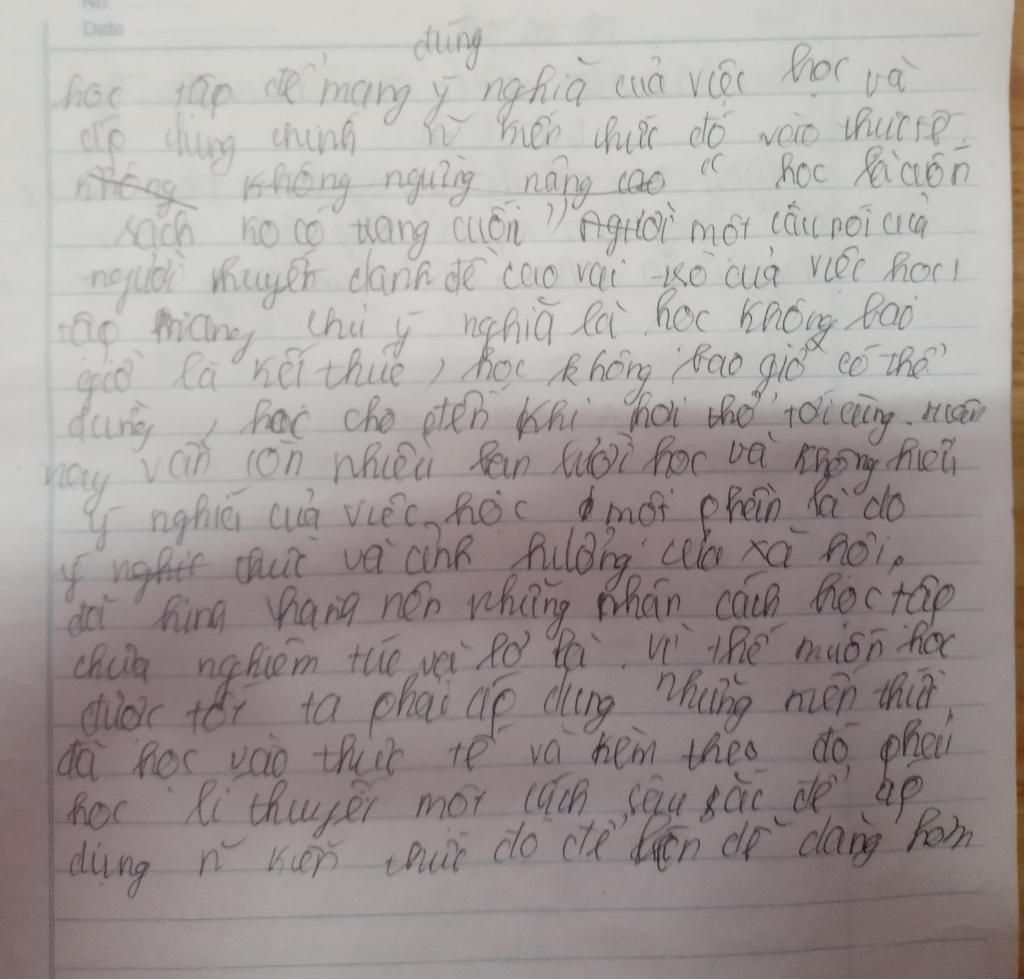 No.
Date
đúng
học tập để mang ý nghĩa của việc học và
áp dụng chính n~ kiến thức đó vào thực tế.
những không ngừng nâng cao "học là cuốn
sách ko có trang cuối" Người một câu nói của
người khuyết danh đề cao vai trò của việc học
tập mang chủ ý nghĩa là học không bao
giờ là kết thúc, học không bao giờ có thể
dừng, học cho đến khi hơi thở tới cùng.
nay vẫn còn nhiều bạn lười học và không hiểu
ý nghĩa của việc học một phần là do
ý nghĩ thức và ảnh hưởng của xã hội.
đã hình thành nên những nhân cách học tập
chưa nghiêm túc và lơ là. vì thế muốn học
được tốt ta phải áp dụng những kiến thức
đã học vào thực tế và kèm theo đó phải
học lí thuyết một cách sâu sắc để áp
dụng n~ kiến thức đó dễ dàng hơn